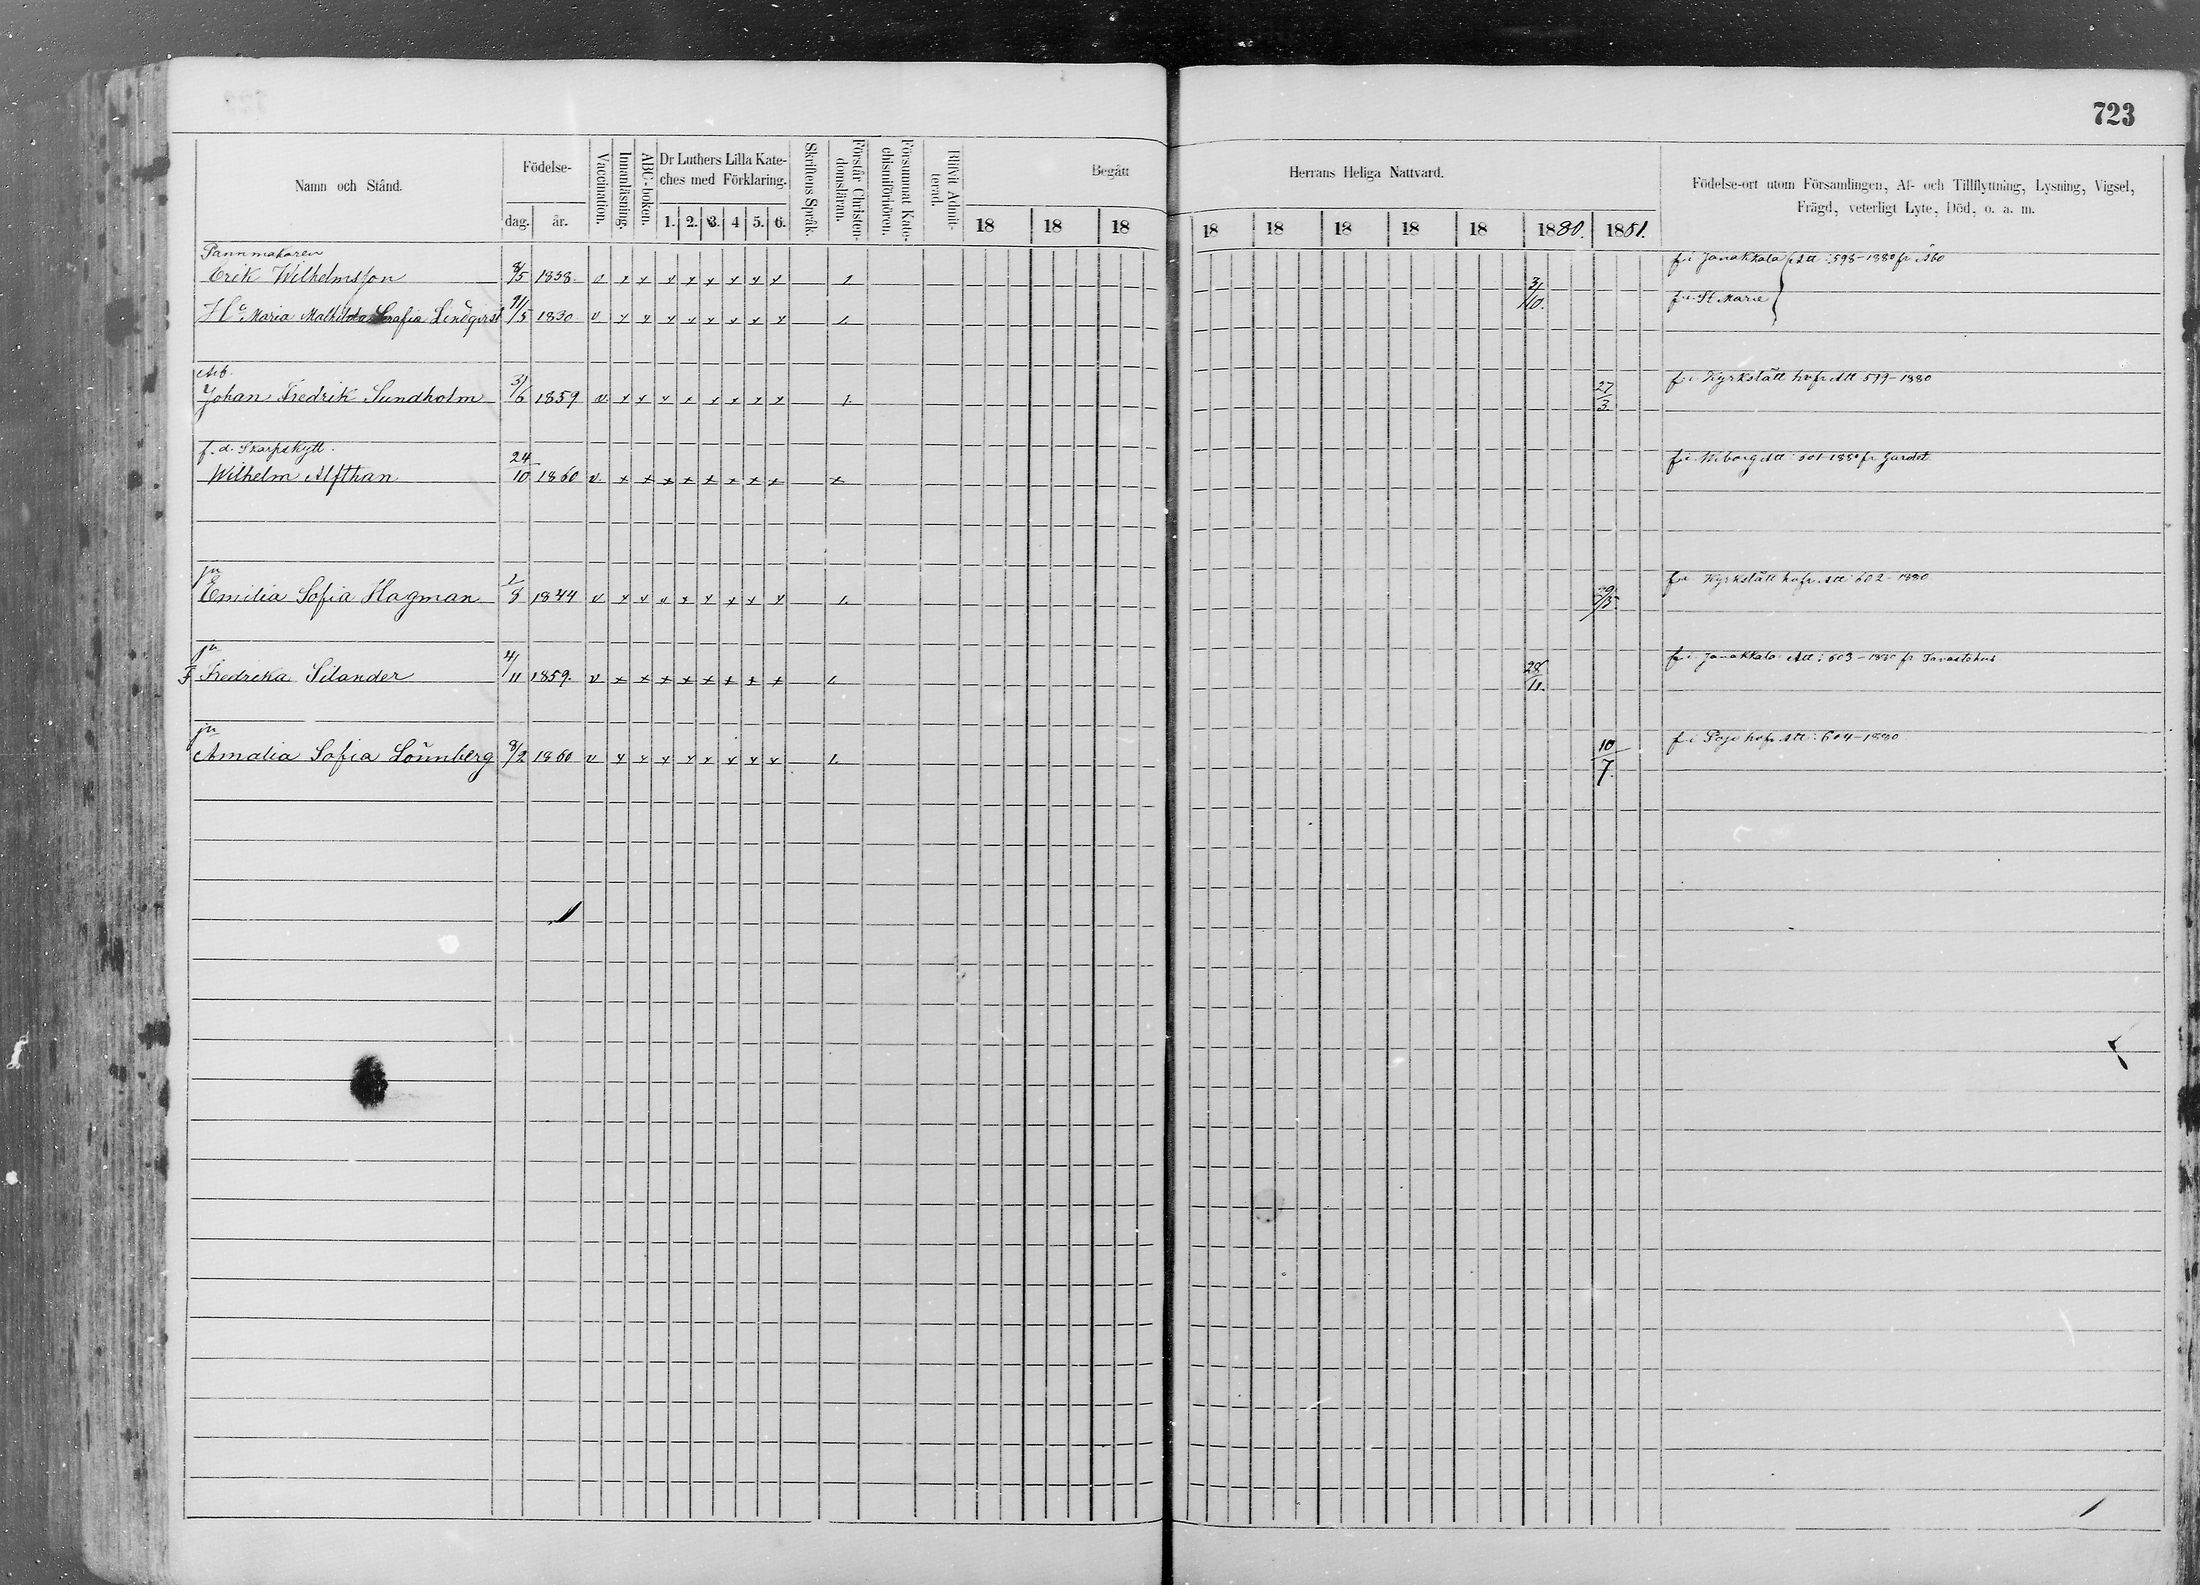 723
Namn och Stånd.
Födelse-
dag. år.
Vaccination.
Innanläsning.
ABC-boken.
Dr Luthers Lilla Kate-
ches med Förklaring.
1. 2. 3. 4 5. 6.
Skriftens Språk.
Förstår Christen-
domsläran.
Försummat Kate-
chismiförhören.
Blifvit Admit-
terad.
Begått Herrans Heliga Nattvard.
18 18 18 18 18 18 18 18 1880. 1881.
Födelse-ort utom Församlingen, Af- och Tillflyttning, Lysning, Vigsel,
Frägd, veterligt Lyte, Död, o. a. m.
Pannmakaren
Erik Wilhelmsson 8/5 1838. v x x x x x x x x 1. 3/10. f. i Janakkala Att: 598-1880 fr Åbo
Hu Maria Mathilda Serafia Lindqvist 11/5 1830 v x x x x x x x x 1. f. i St Marie
Arb.
Johan Fredrik Sundholm 3/6 1859 v x x x x x x x x 1. 27/3. f. i Kyrkslätt hvfr Att 599-1880
f. d. Skarpskytt.
Wilhelm Alfthan 24/10 1860 v. x x x x x x x x x f. i Wiborg Att: 601-1880 fr Gardet
pn
Emilia Sofia Hagman 1/8 1844 v x x x x x x x x 1. 29/5 f. i Kyrkslätt hvfr. Att: 602-1880
pn
F Fredrika Silander 4/11 1859. v x x x x x x x x 1. 28/11. f. i Janakkala Att: 603-1880 fr Tavastehus
pn
Amalia Sofia Lönnberg 8/2 1860 v x x x x x x x x 1. 10/7. f. i Pojo hvfr Att: 604-1880